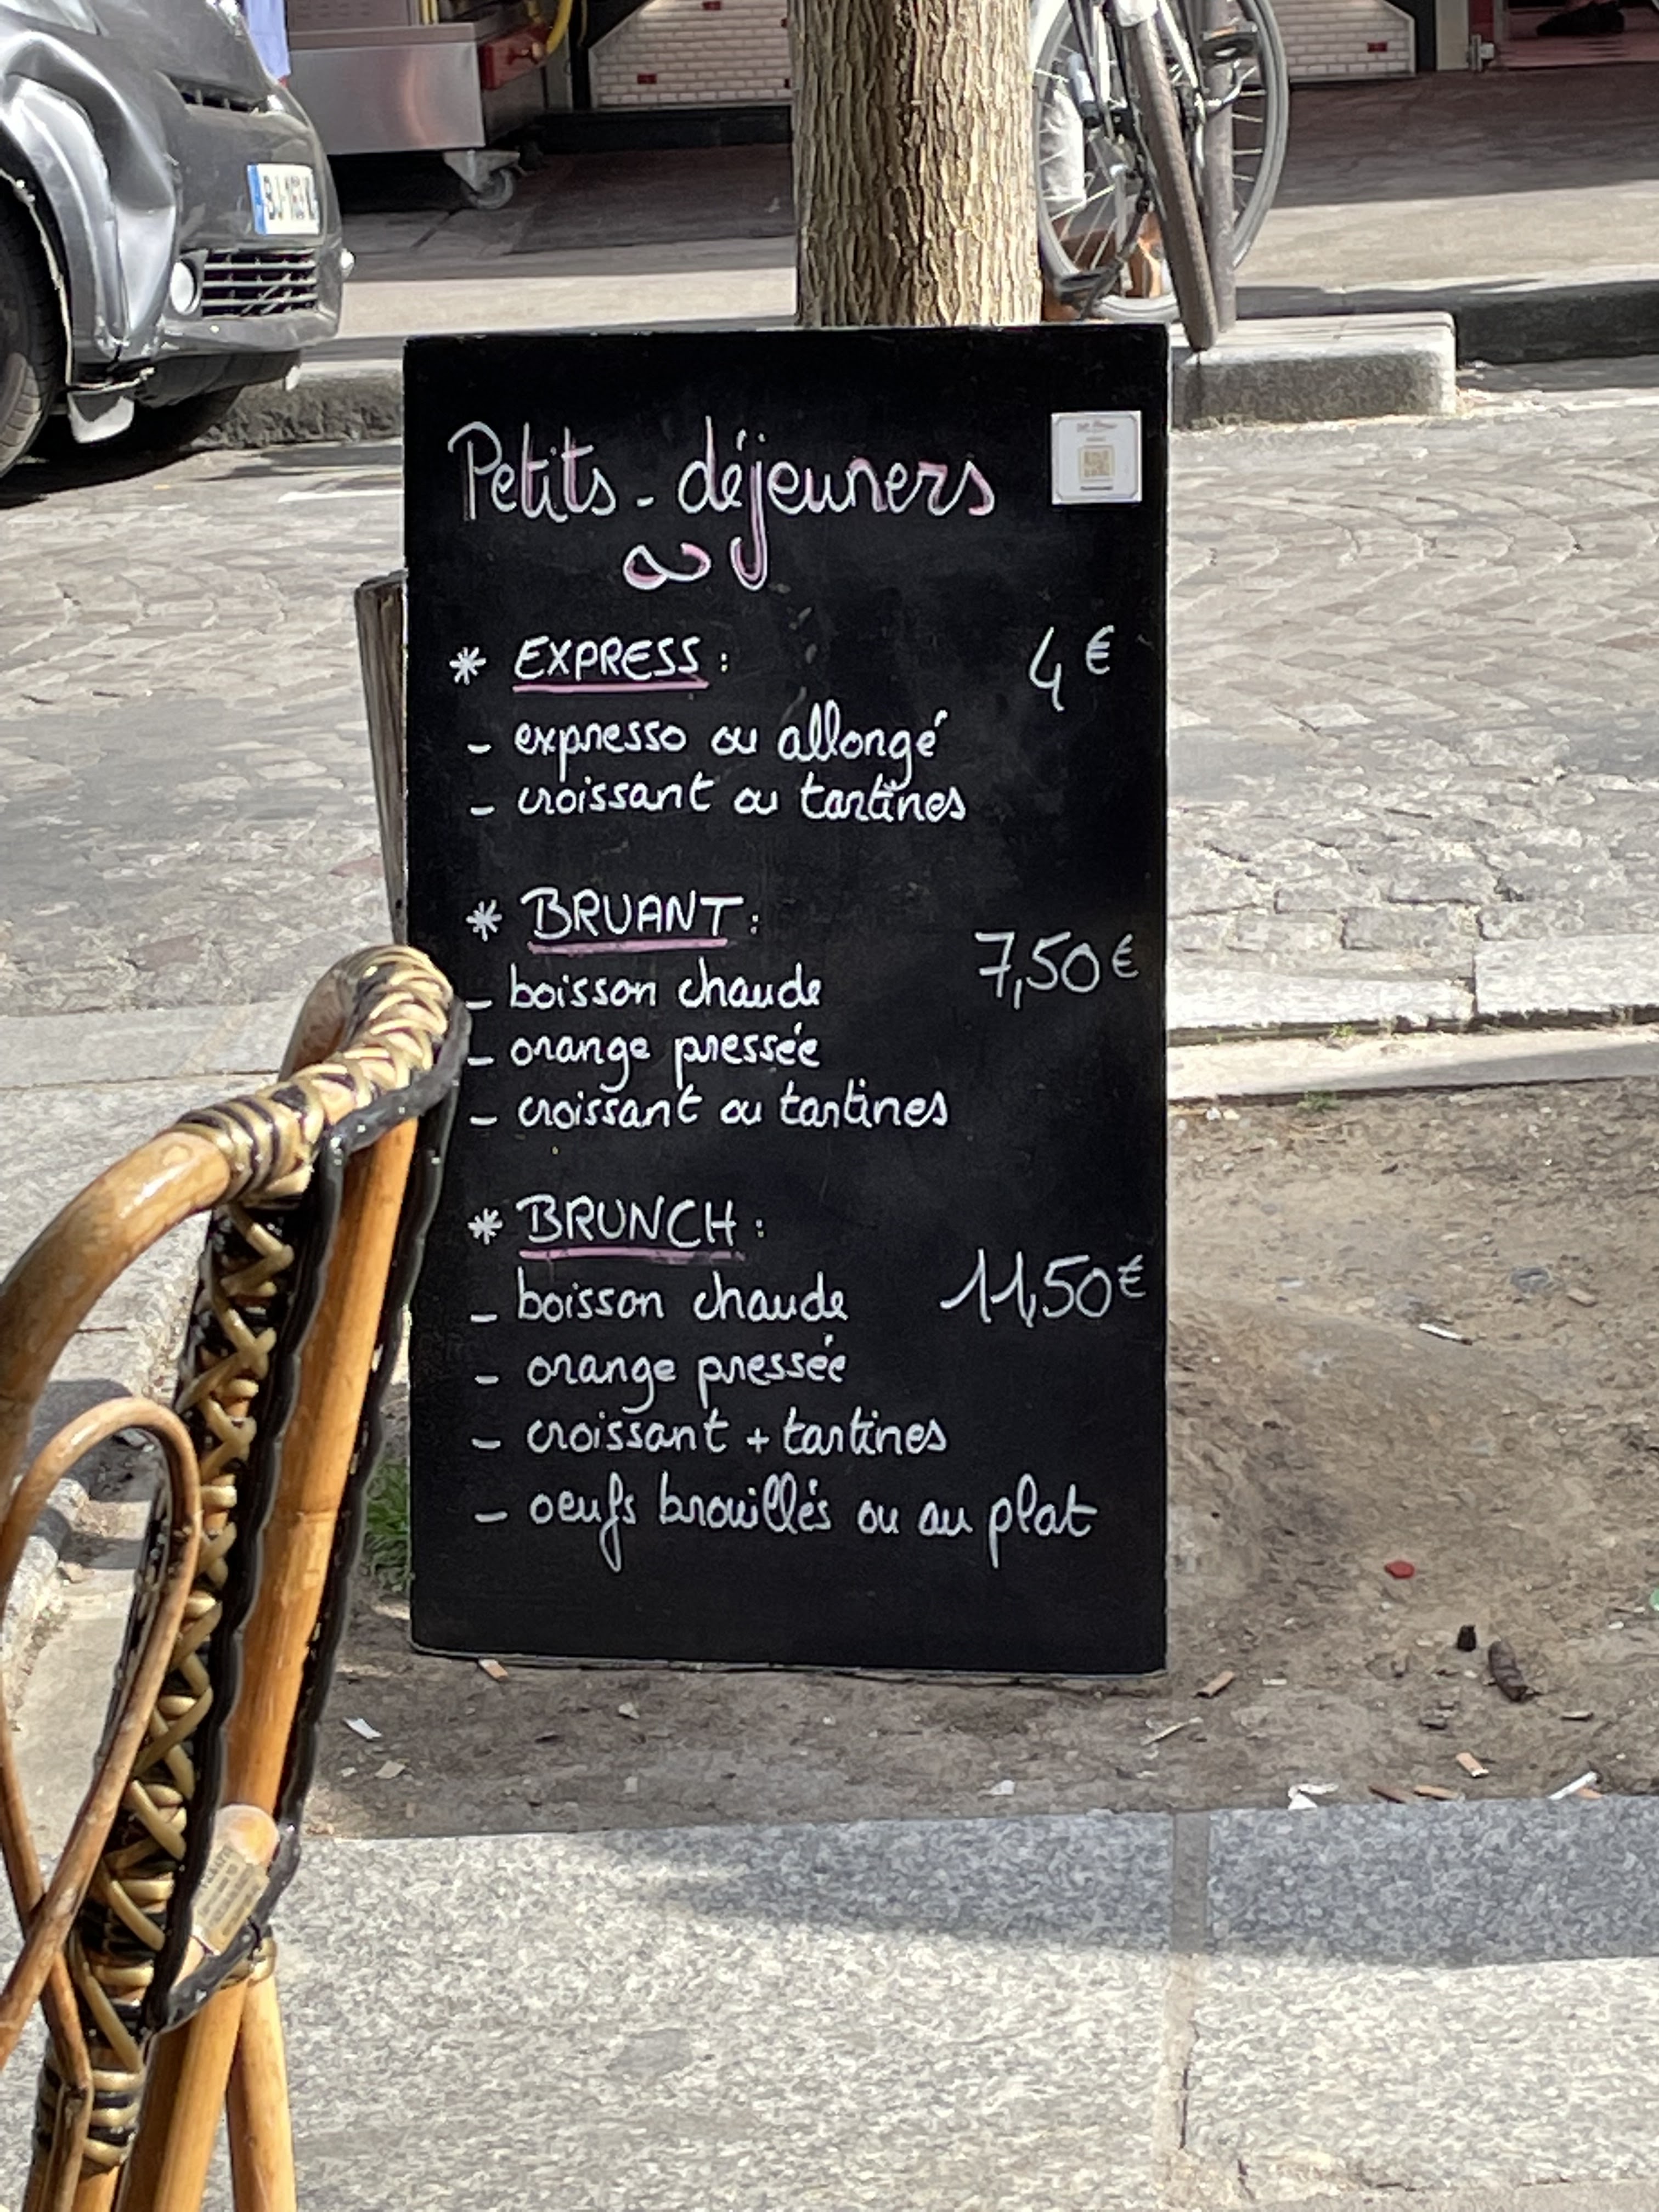 Petits-déjeuners
* EXPRESS : 4€
- expresso ou allongé
- croissant ou tartines
* BRUANT : 7,50€
- boisson chaude
- orange pressée
- croissant ou tartines
* BRUNCH : 11,50€
- boisson chaude
- orange pressée
- croissant + tartines
- oeufs brouillés ou au plat